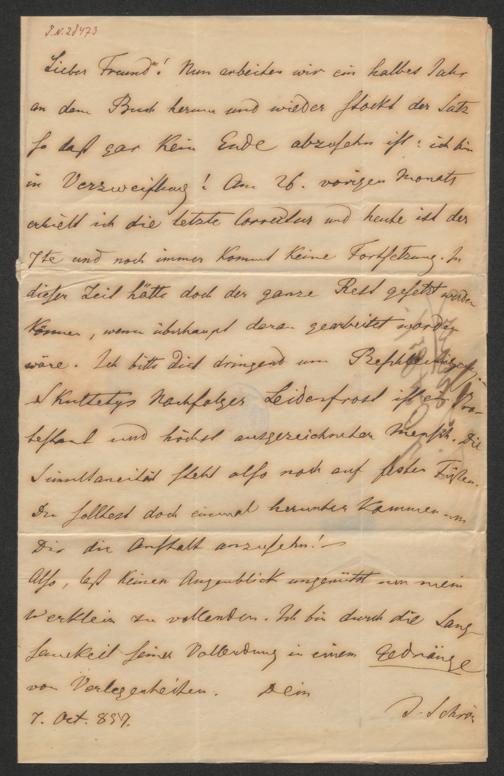 I.N. 28473
Lieber Freund! Nun arbeiten wir ein halbes Jahr
an dem Buch herum und wieder stockt der Satz
so daß gar kein Ende abzusehn ist: ich bin
in Verzweiflung! Am 26. vorigen Monats
erhielt ich die letzte Correctur und heute ist der
7te und noch immer kommt keine Fortsetzung. In
dieser Zeit hätte doch der ganze Rest gesetzt werden
können, wenn überhaupt daran gearbeitet worden
wäre. Ich bitte dich dringend um
Nachfolger Leidenfrost ist ein Pro-
testant und höchst ausgezeichneter Mensch. Die
Simultaneität steht also noch auf festen Füßen.
Du solltest doch einmal herunter kommen um
Dir die Anstalt anzusehn! –
Also, laß keinen Augenblick ungenützt um mein
Werklein zu vollenden. Ich bin durch die Lang-
samkeit seiner Vollendung in einem Gedränge
von Verlegenheiten. Dein
7. Oct. 857. J. Schrö